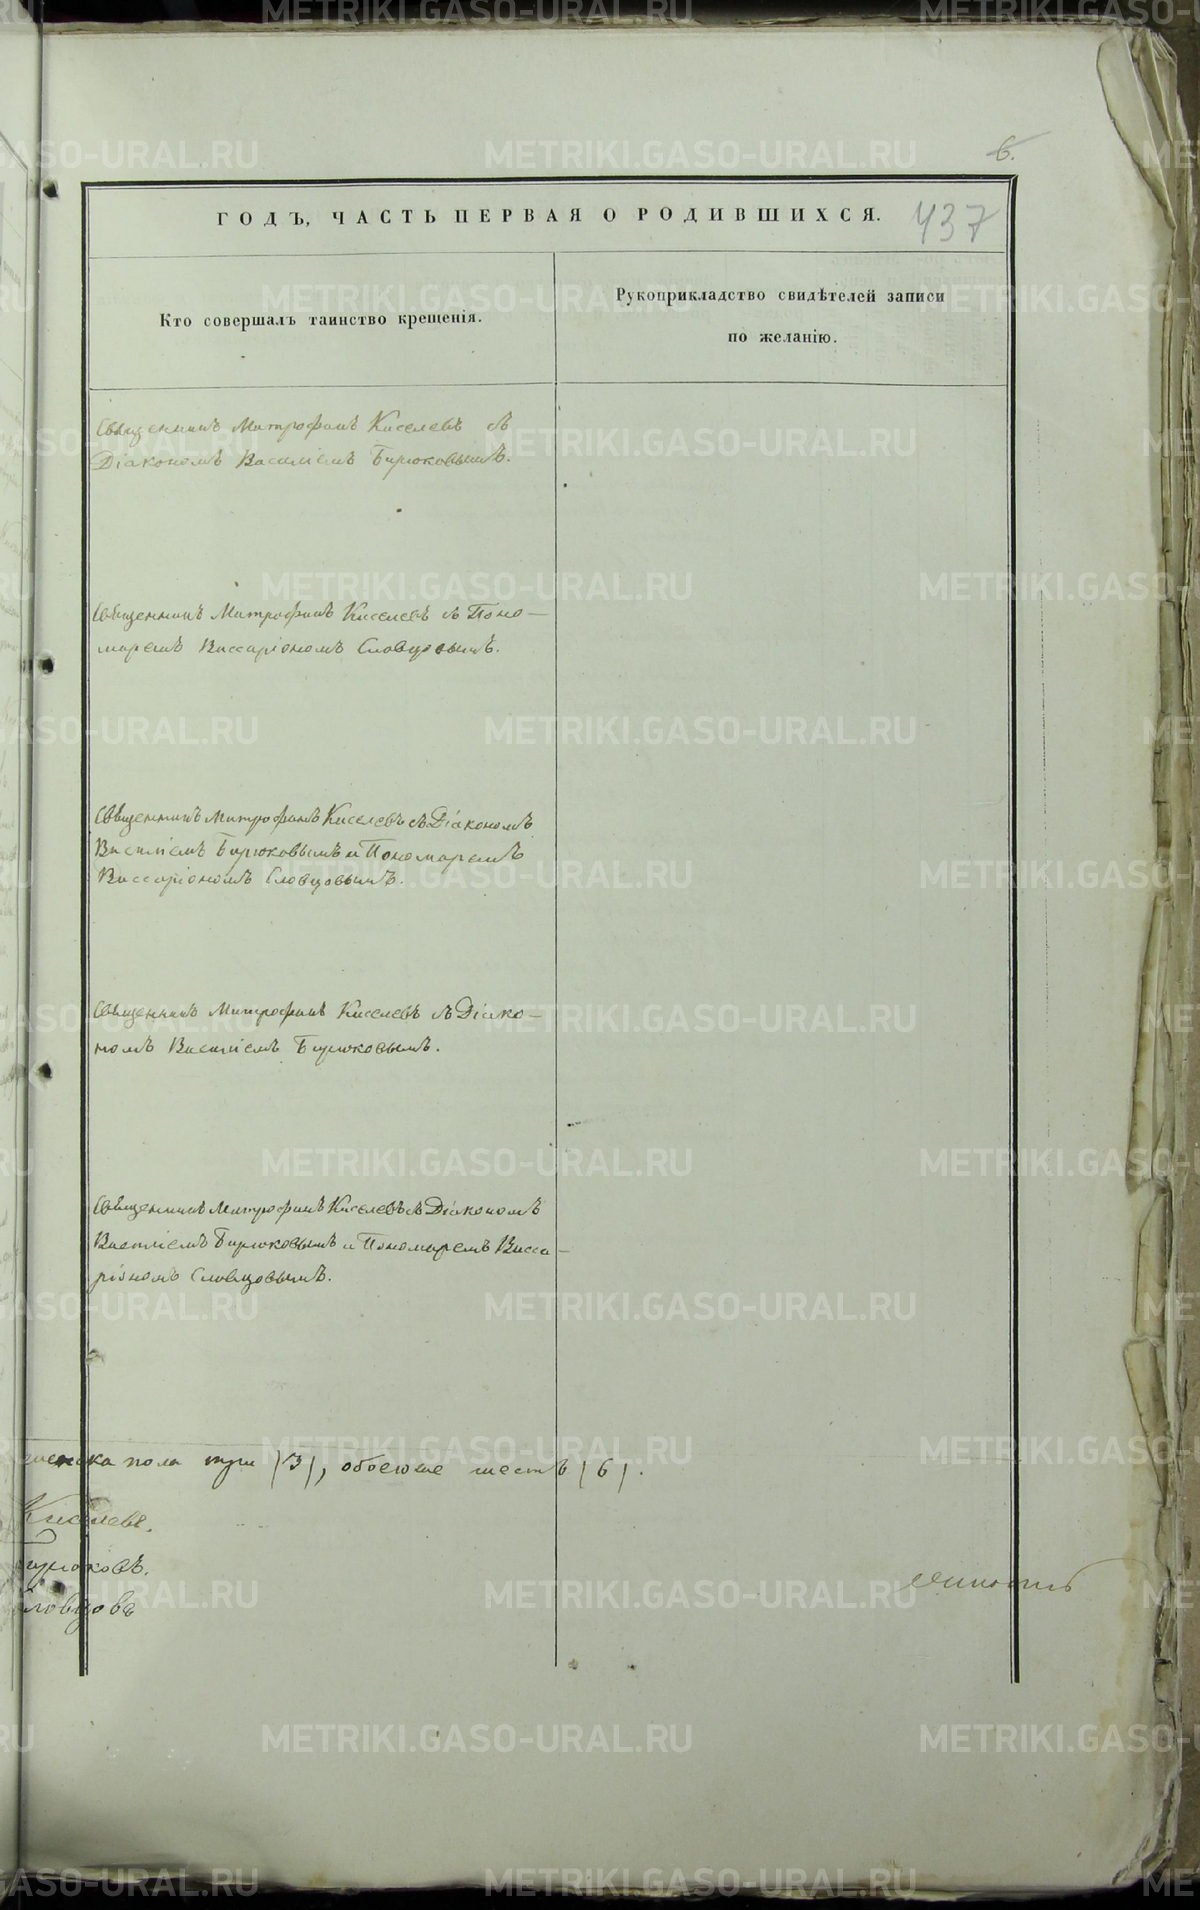 6.
ГОДЪ, ЧАСТЬ ПЕРВАЯ О РОДИВШИХСЯ.
437
Кто совершалъ таинство крещенія.
Рукоприкладство свидѣтелей записи
по желанію.
Священникъ Митрофанъ Киселевъ съ
Діакономъ Василіемъ Бирюковымъ.
Священникъ Митрофанъ Киселевъ съ Поно-
маремъ Виссаріономъ Словцовымъ.
Священникъ Митрофанъ Киселевъ съ Діакономъ
Василіемъ Бирюковымъ и Пономаремъ
Виссаріономъ Словцовымъ.
Священникъ Митрофанъ Киселевъ съ Діако-
номъ Василіемъ Бирюковымъ.
Священникъ Митрофанъ Киселевъ съ Діакономъ
Василіемъ Бирюковымъ и Пономаремъ Висса-
ріономъ Словцовымъ.
женска пола три /3/, обоего шесть /6/.
Киселевъ.
Бирюковъ.
Словцовъ
METRIKI.GASO-URAL.RU